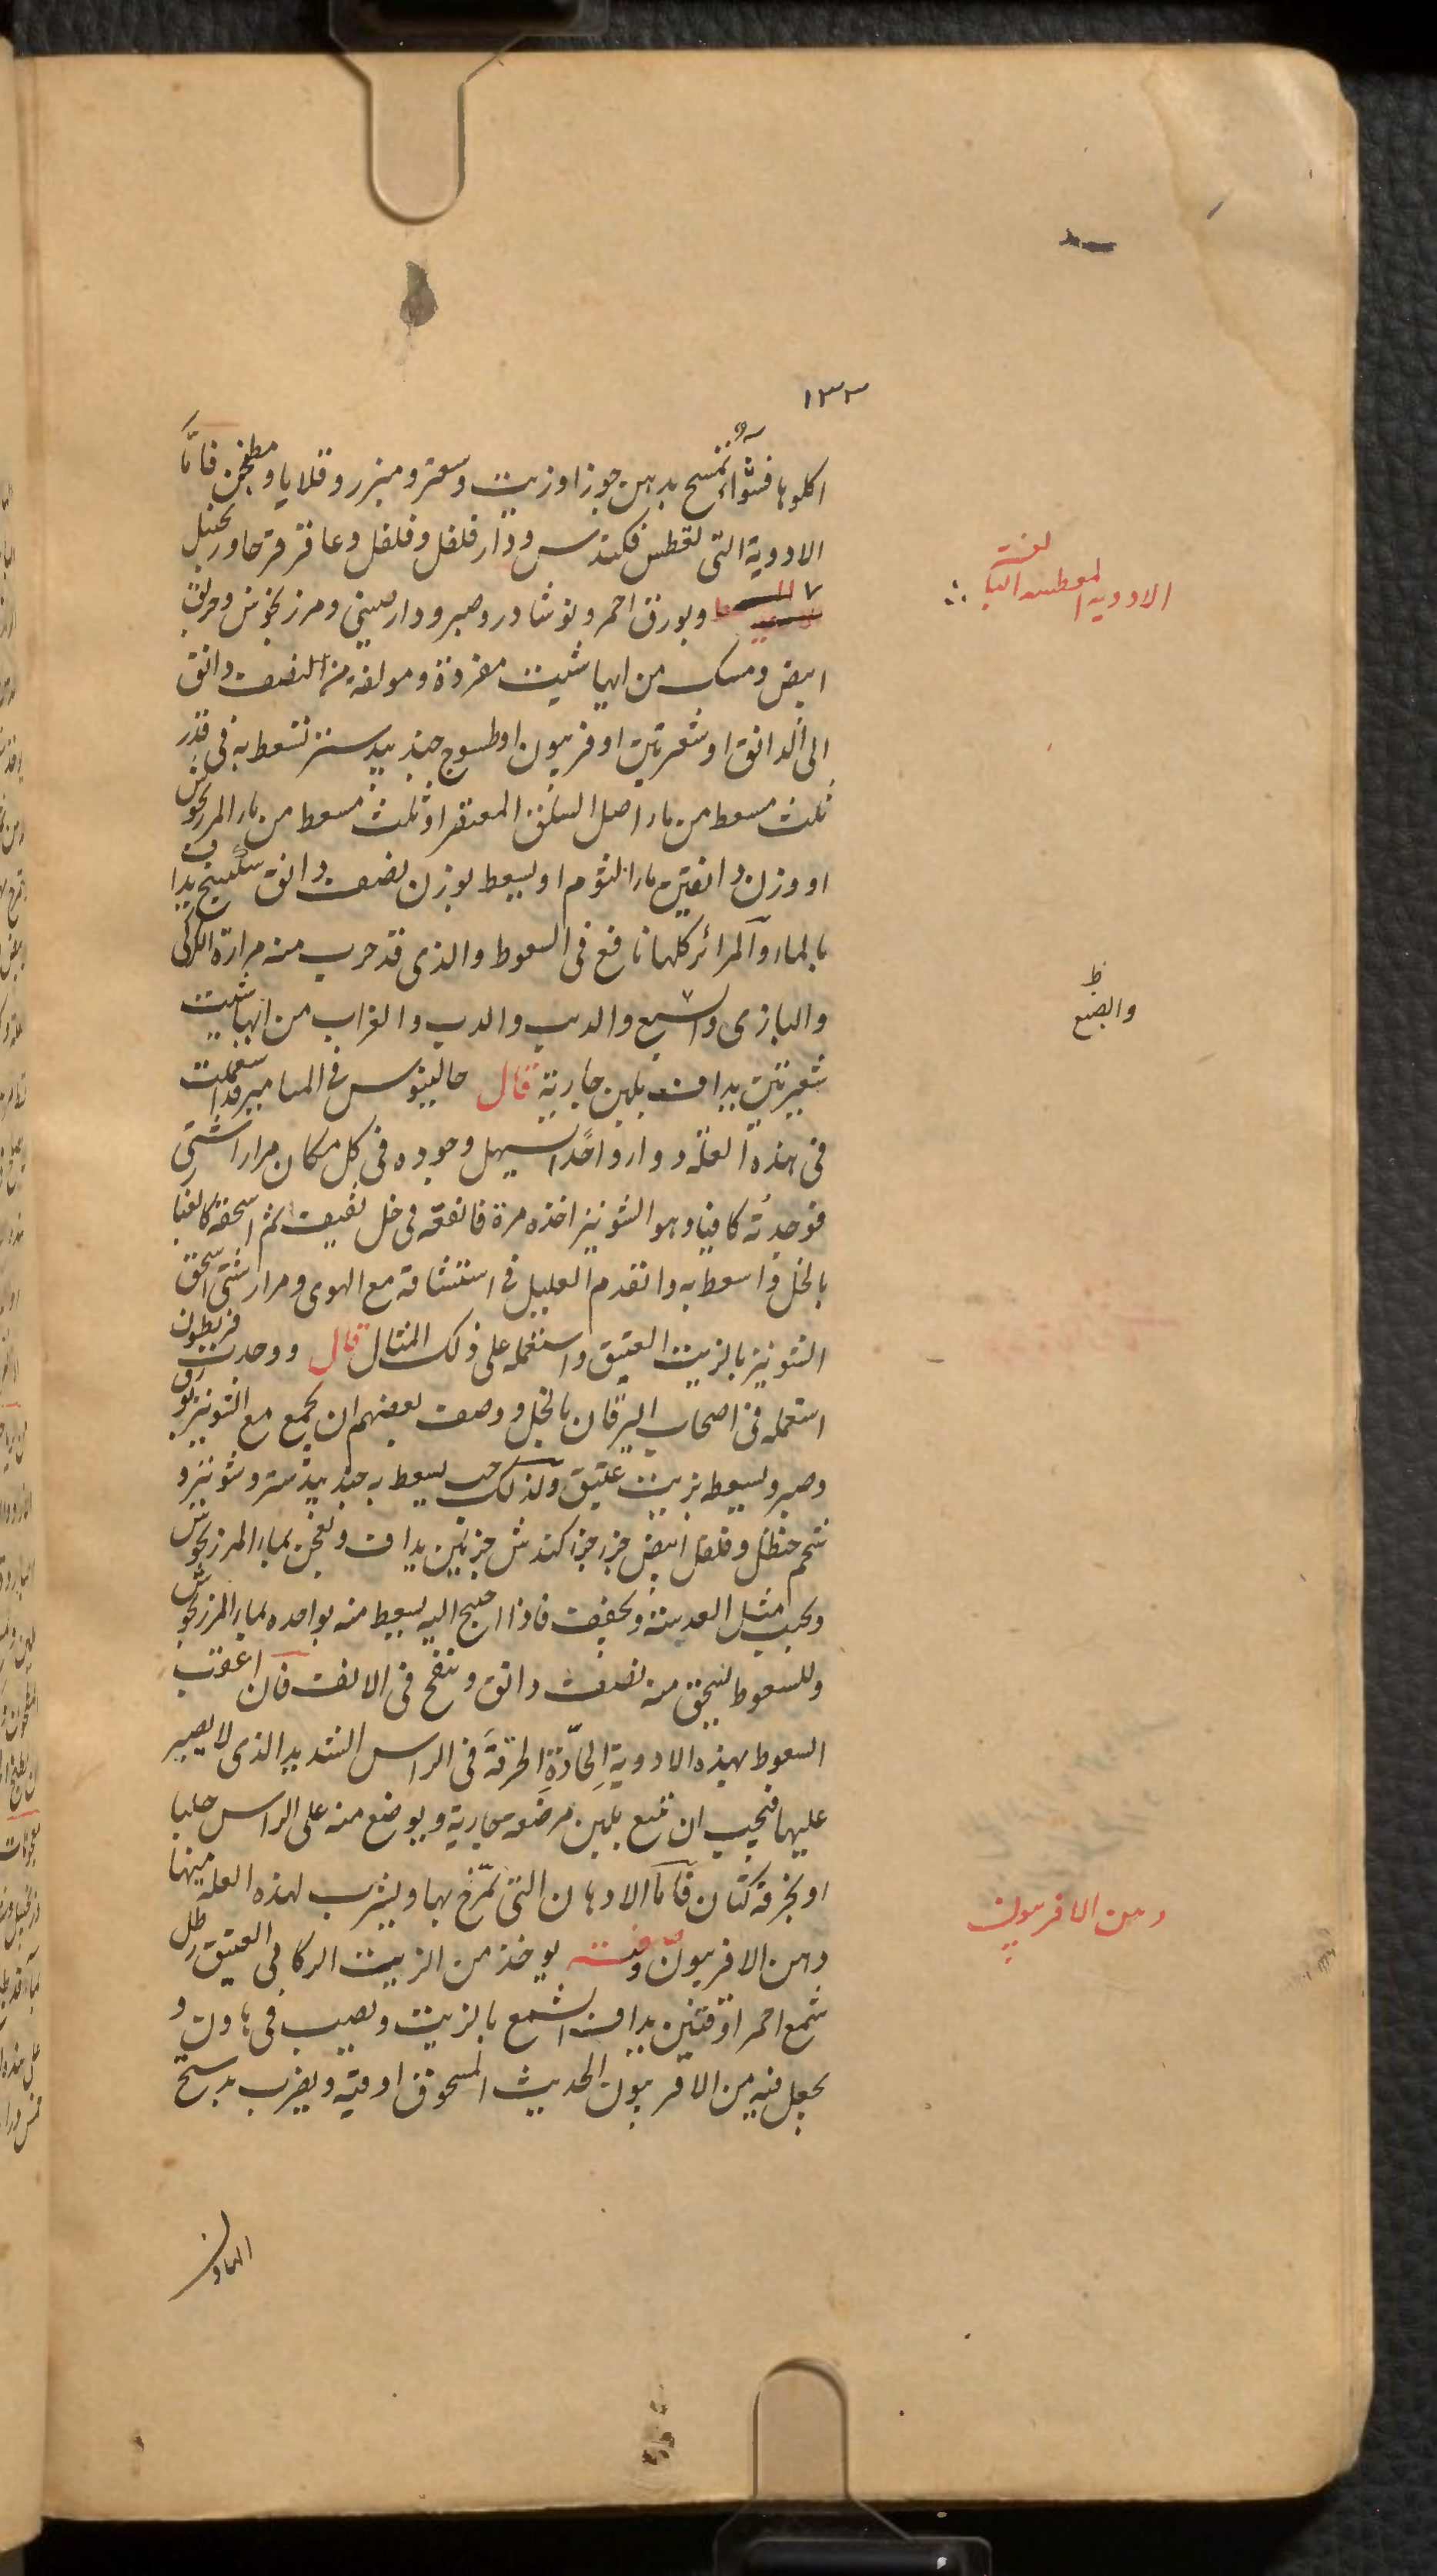 ١٣٣
اكلوها فشواء تمسح بدهن جوز او زيت وسعتر ومبزر وقلايا ومطجن فاما
الادوية التى تعطس فكندس ودار فلفل وفلفل وعاقر قرحا وزنجبيل
وبورق احمر ونوشادر وصبر ودارصينى ومرزنجوش وخربق
ابيض ومسك من ايها شيت مفردة ومولفة من النصف دانق
الى الدانق او شعيرتين افربيون او طسوج جندبيدستر تسعط به فى قدر
ثلث مسعط من ماء اصل السلق المعتصر او ثلث مسعط من ماء المرزنجوش
او وزن دانقين ماء الثوم او يسعط بوزن نصف دانق سكبينج يداف
بالماء والمرائر كلها نافع فى السعوط والذى قد جرب منه مرارة الكركى
والبازى والسبع والديب والدب والغراب من ايها شيت
شعيرتين يداف بلبن جارية قال جالينوس فى الميامير قد استعملت
فى هذه العلة دواء واحدا يسهل وجوده فى كل مكان مرارا شتى
فوجدته كافيا وهو الشونيز اخذه مرة فانقعه فى خل ثقيف ثم اسحقه كالغبا
بالخل واسعط به واتقدم العليل فى استنشاقه مع الهوى ومرار شتى اسحق
الشونيز بالزيت العتيق واستعمله على ذلك المثال قال ووجدت فريطون
استعمله فى اصحاب اليرقان بالخل ووصف بعضهم ان يجمع مع الشونيز بورق
وصبر ويسعط بزيت عتيق وكذلك حب يسعط به جندبيدستر وشونيز و
شحم حنظل وفلفل ابيض جزء جزء كندش جزئين يداف ويعجن بماء المرزنجوش
ويحبب مثل العدسة ويجفف فاذا احتيج اليه يسعط منه بواحده بماء المرزنجوش
وللسعوط يسحق منه نصف دانق وينفخ فى الانف فان اعقب
السعوط بهذه الادوية الحادة الحرقة فى الراس الشديد الذى لا يصبر
عليها فيجب ان تتبع بلبن مرضعة جارية ويوضع منه على الراس حلبا
او بخرقة كتان فاما الادهان التى تمرخ بها ويشرب لهذه العلة فمنها
دهن الافربيون وصفته يوخذ من الزيت الركابى العتيق رطل
شمع احمر اوقتين يداف الشمع بالزيت ويصب فى هاون و
يجعل فيه من الافربيون الحديث المسحوق اوقية ويضرب بدستج
الهاون
الادوية المعطسة
ظ
والضبع
دهن الافربيون